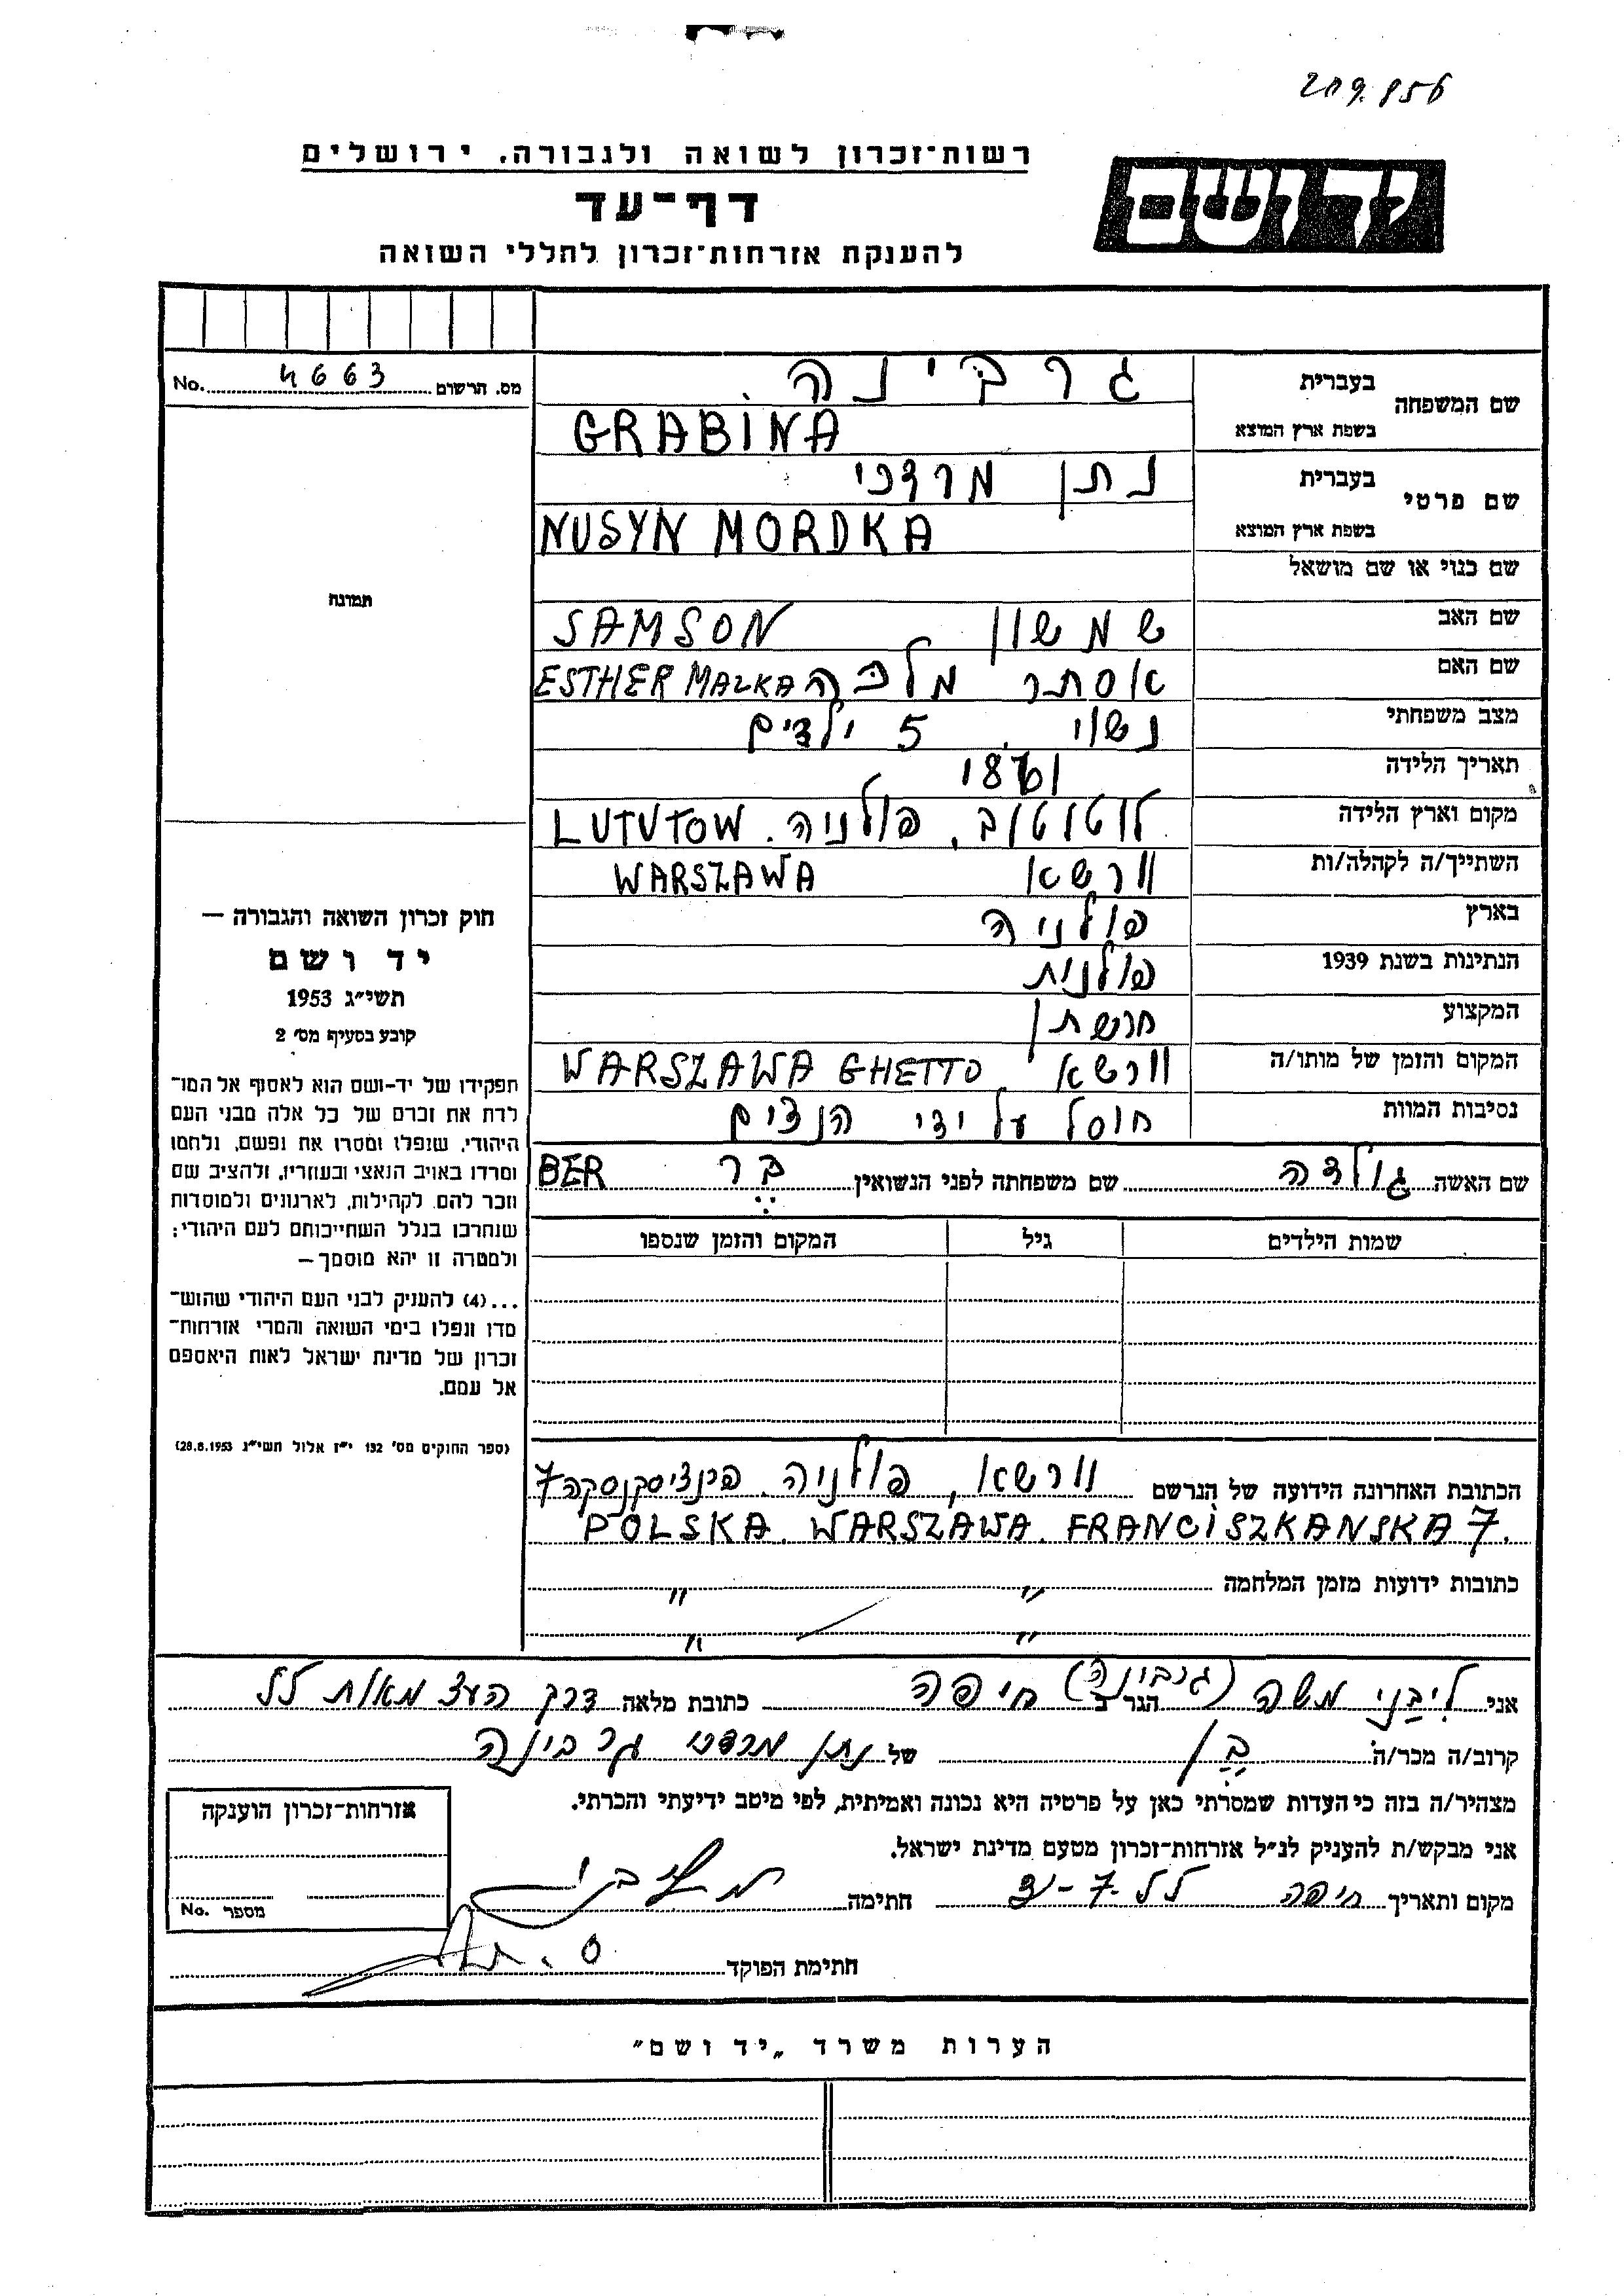 209.856
רשות־זכרון לשואה ולגבורה. ירושלים
יד ושם
דף־עד
להענקת אזרחות־זכרון לחללי השואה
מס. הרשום 4663 No.
שם המשפחה בעברית גרבינה
בשפת ארץ המוצא GRABINA
שם פרטי בעברית נתן מרדכי
בשפת ארץ המוצא NUSYN MORDKA
תמונה
שם כנוי או שם מושאל
שם האב שמשון SAMSON
שם האם אסתר מלכה ESTHER MALKA
מצב משפחתי נשוי. 5 ילדים
תאריך הלידה
מקום וארץ הלידה לוטוטוב, פולניה. LUTUTOW
השתייך/ה לקהלה/ות וורשא WARSZAWA
בארץ פולניה
הנתינות בשנת 1939 פולנית
המקצוע חרשתן
המקום והזמן של מותו/ה וורשא WARSZAWA GHETTO
נסיבות המוות חוסל על ידי הנצים
שם האשה גולדה שם משפחתה לפני הנשואין בר BER
שמות הילדים גיל המקום והזמן שנספו
הכתובת האחרונה הידועה של הנרשם וורשא, פולניה. 7
POLSKA. WARSZAWA. FRANCISZKANSKA 7.
כתובות ידועות מזמן המלחמה " "
" "
חוק זכרון השואה והגבורה —
יד ושם
תשי״ג 1953
קובע בסעיף מס׳ 2
תפקידו של יד-ושם הוא לאסוף אל המו־
לדת את זכרם של כל אלה מבני העם
היהודי, שנפלו ומסרו את נפשם, נלחמו
ומרדו באויב הנאצי ובעוזריו, ולהציב שם
וזכר להם, לקהילות, לארגונים ולמוסדות
שנחרבו בגלל השתייכותם לעם היהודי;
ולמטרה זו יהא מוסמך —
...(4) להעניק לבני העם היהודי שהוש־
מדו ונפלו בימי השואה והמרי אזרחות־
זכרון של מדינת ישראל לאות היאספם
אל עמם.
(ספר החוקים מס׳ 132 י״ז אלול תשי״ג 28.8.1953)
אני ליבני משה (גרבינה) הגר ב חיפה כתובת מלאה דרך העצמאות 55
קרוב/ה מכר/ה בן של נתן מרדכי גרבינה
מצהיר/ה בזה כי העדות שמסרתי כאן על פרטיה היא נכונה ואמיתית, לפי מיטב ידיעתי והכרתי.
אני מבקש/ת להעניק לנ״ל אזרחות־זכרון מטעם מדינת ישראל.
מקום ותאריך חיפה חתימה
חתימת הפוקד
אזרחות־זכרון הוענקה
מספר No.
הערות משרד „יד ושם״